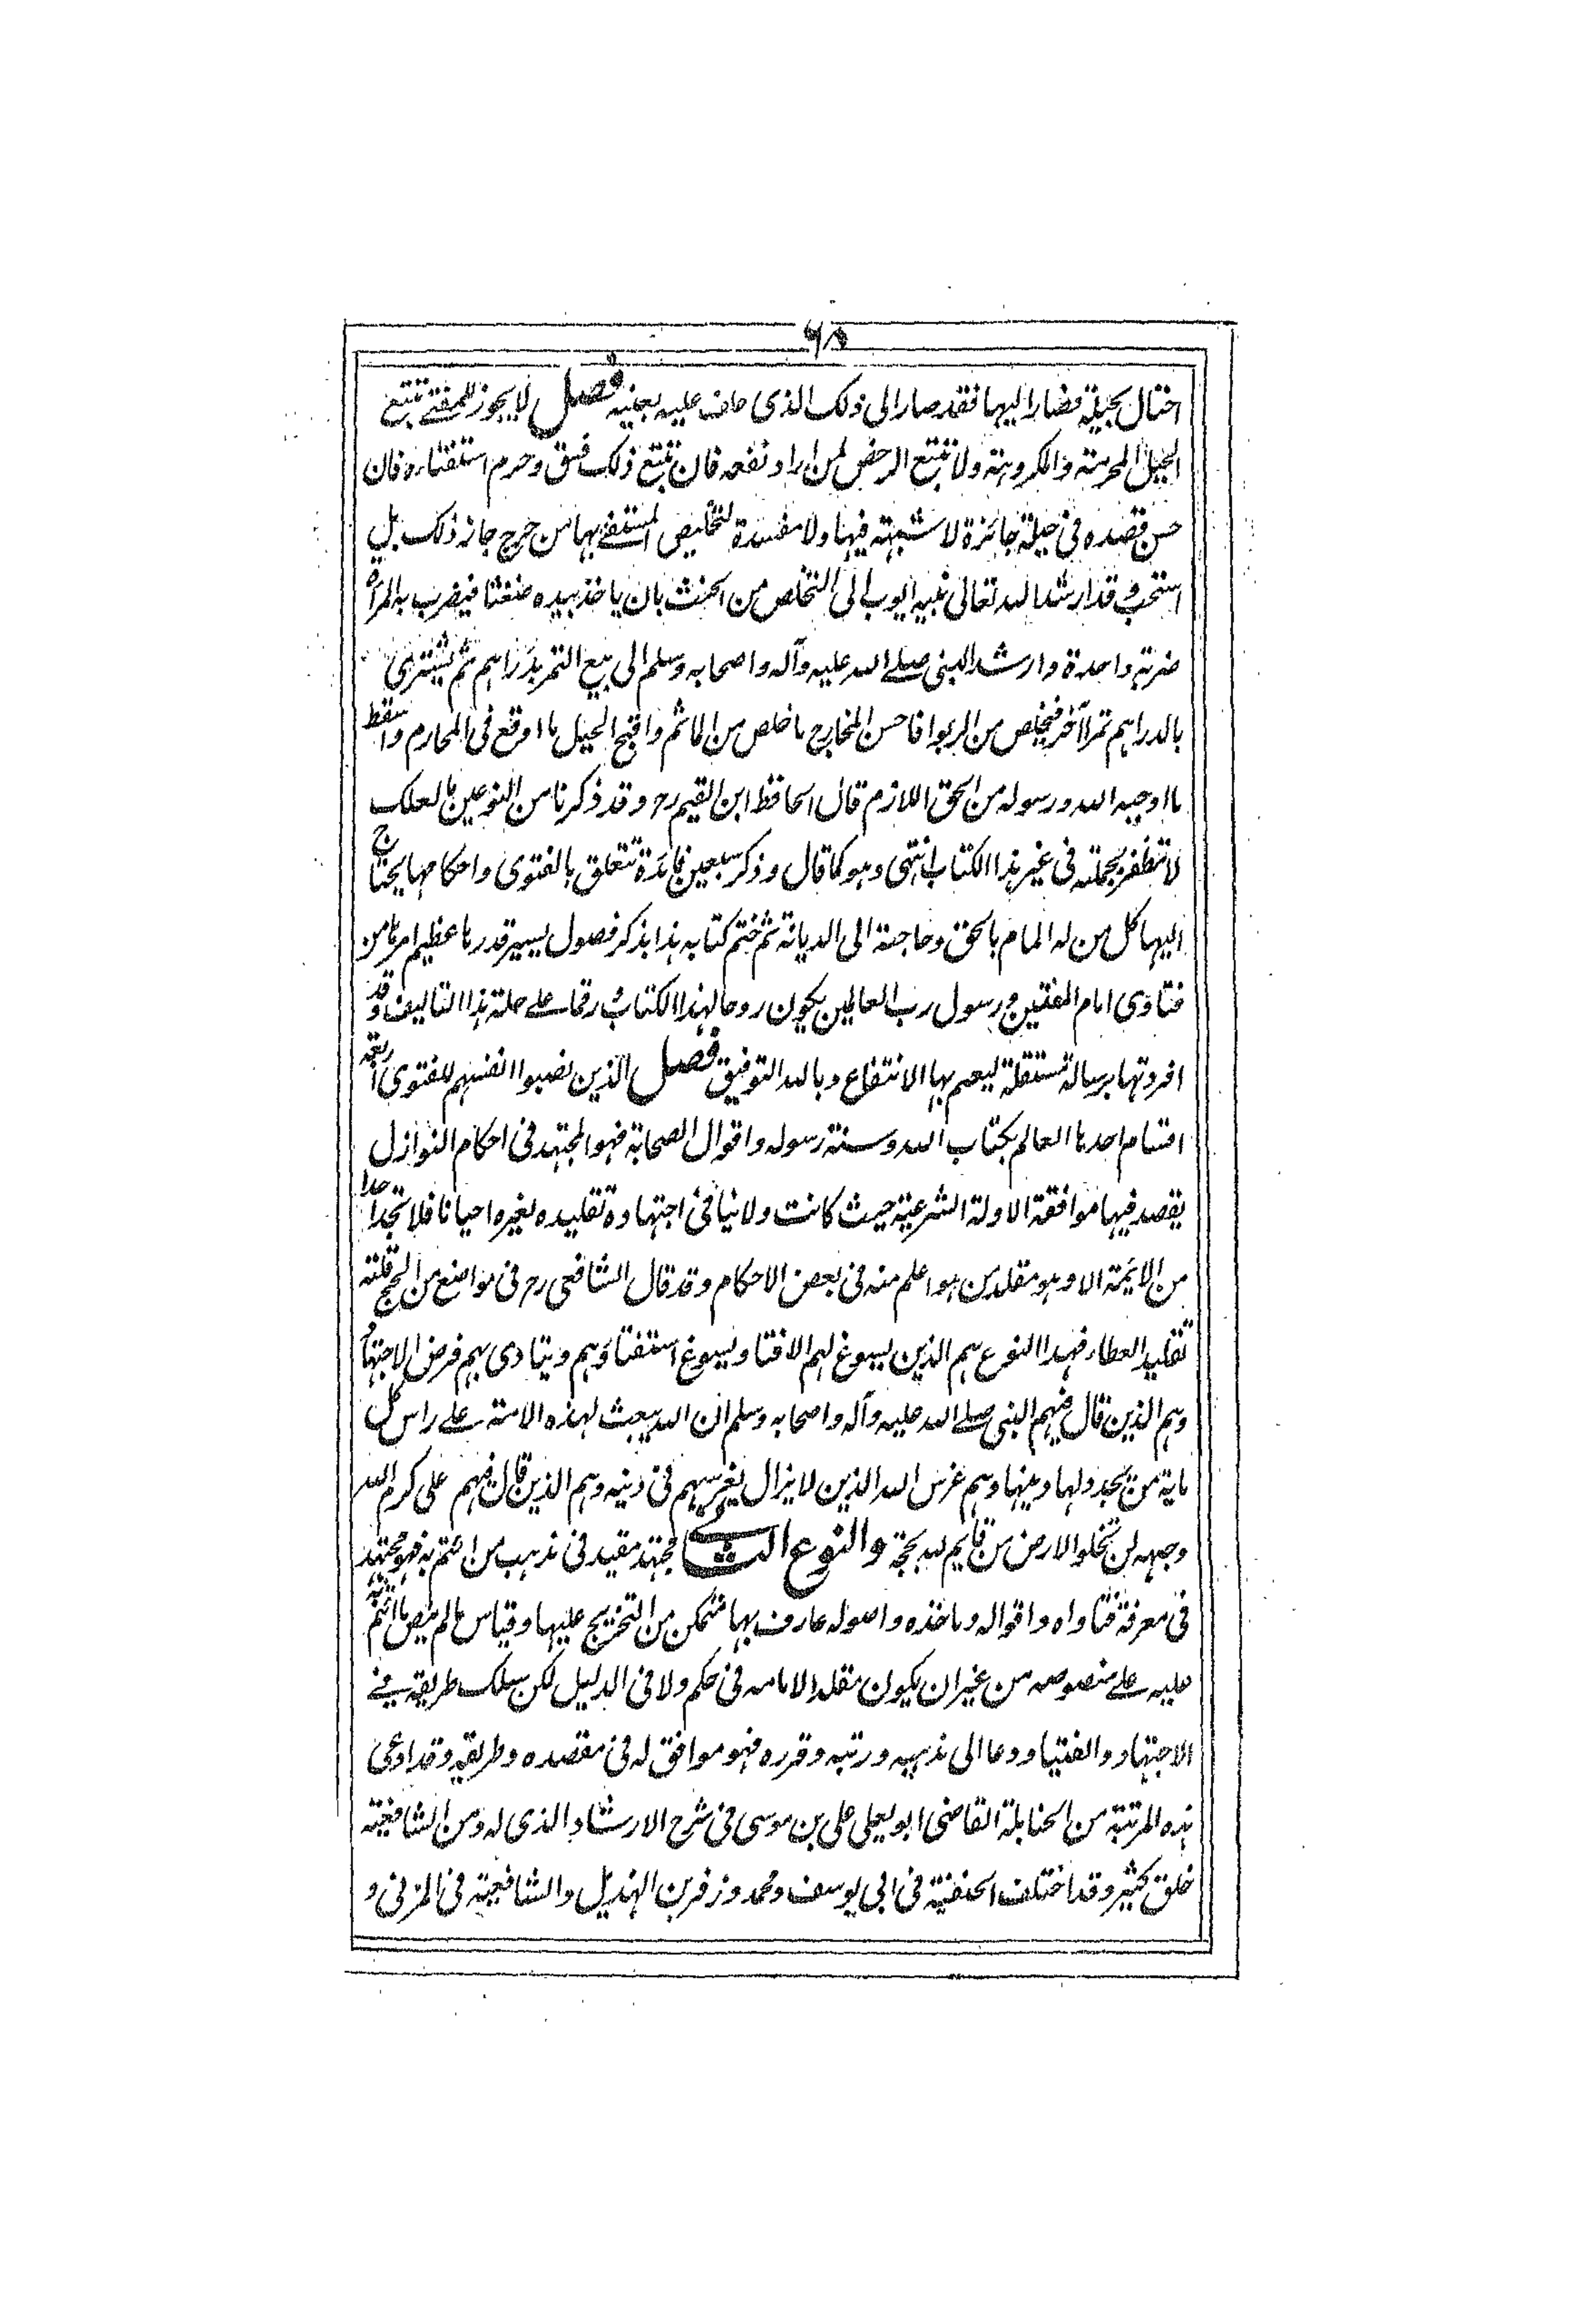 ٦٥
احتال بحيلة فصار اليها فقد صار الى ذلك الذى حلف عليه بعينه فصل لا يجوز للمفتے تتبع
الحيل المحرمة والمكروهة ولا تتبع الرخص لمن اراد نفعه فان تتبع ذلك فسق وحرم استفتاءه فان
حسن قصده فى حيلة جائزة لا شبهة فيها ولا مفسدة لتخليص المستفتے بها من حرج جاز ذلك بل
استحب وقد ارشد الله تعالى نبيه ايوب الى التخلص من الحنث بان ياخذ بيده ضغثا فيضرب به المرأة
ضربة واحدة وارشد النبى صلے الله عليه وآله واصحابه وسلم الى بيع التمر بدراهم ثم يشترى
بالدراهم تمرا آخر فيخلص من الربوا فاحسن المخارج ما خلص من الماثم واقبح الحيل ما اوقع فى المحارم واسقط
ما اوجبه الله ورسوله من الحق اللازم قال الحافظ ابن القيم رح وقد ذكرنا من النوعين ما لعلك
لا تظفر بجملته فى غير هذا الكتاب انتهى وهو كما قال وذكر سبعين فائدة تتعلق بالفتوى واحكامها يحتاج
اليها كل من له المام بالحق وحاجة الى الديانة ثم ختم كتابه هذا بذكر فصول يسير قدرها عظيم امرها من
فتاوى امام المفتين ورسول رب العالمين يكون روحا لهذا الكتاب ورقما علے حلة هذا التاليف وقد
افردتها برسالة مستقلة ليعم بها الانتفاع وبالله التوفيق فصل الذين نصبوا انفسهم للفتوى اربعة
اقسام احدها العالم بكتاب الله وسنة رسوله واقوال الصحابة فهو المجتهد فى احكام النوازل
يقصد فيها موافقة الادلة الشرعية حيث كانت ولا ينافى اجتهاده تقليده لغيره احيانا فلا تجد احدا
من الايمة الا وهو مقلد من هو اعلم منه فى بعض الاحكام وقد قال الشافعى رح فى مواضع من الحج قلته
تقليد العطاء فهذا النوع هم الذين يسوغ لهم الافتا ويسوغ استفتاؤهم ويتادى بهم فرض الاجتهاد
وهم الذين قال فيهم النبى صلے الله عليه وآله واصحابه وسلم ان الله يبعث لهذه الامة علے راس كل
ماية من يجدد لها دينها وهم غرس الله الذين لا يزال يغرسهم فى دينه وهم الذين قال فيهم على كرم الله
وجهه لن تخلو الارض من قايم لله بحجة والنوع الثانے مجتهد مقيد فى مذهب من ائتم به فهو مجتهد
فى معرفة فتاواه واقواله وماخذه واصوله عارف بها متمكن من التخريج عليها وقياس ما لم ينص ما ائتم به
عليه علے منصوصه من غير ان يكون مقلدا لامامه فى حكم ولا فى الدليل لكن سلك طريقه فے
الاجتهاد والفتيا ودعا الى مذهبه ورتبه وقرره فهو موافق له فى مقصده وطريقه وقد ادعى
هذه المرتبة من الحنابلة القاضى ابو يعلى على بن موسى فى شرح الارشاد الذى له ومن الشافعية
خلق كثير وقد اختلف الحنفية فى ابى يوسف ومحمد وزفر بن الهذيل والشافعية فى المزنى و